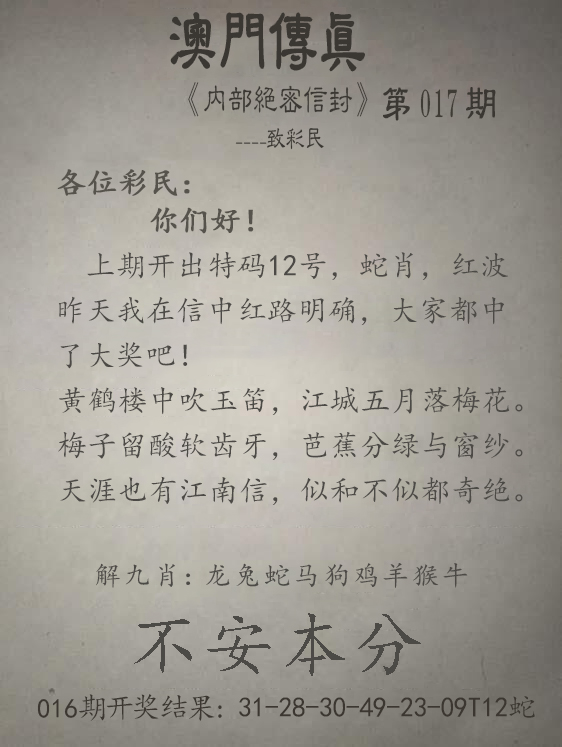 澳門傳真
《内部絕密信封》第017期
----致彩民
各位彩民：
你们好！
上期开出特码12号，蛇肖，红波
昨天我在信中红路明确，大家都中
了大奖吧！
黄鹤楼中吹玉笛，江城五月落梅花。
梅子留酸软齿牙，芭蕉分绿与窗纱。
天涯也有江南信，似和不似都奇绝。
解九肖：龙兔蛇马狗鸡羊猴牛
不安本分
016期开奖结果：31-28-30-49-23-09T12蛇